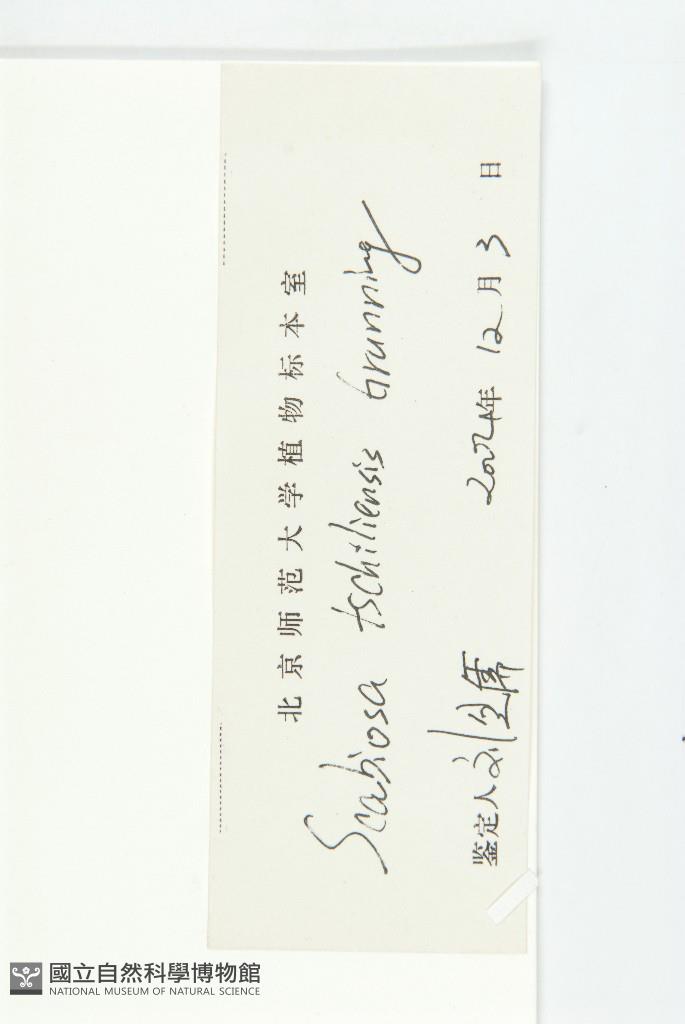 北京师范大学植物标本室
Scabiosa tschiliensis Grunning
鉴定人 刘全儒 2004年 12月 3 日
國立自然科學博物館
NATIONAL MUSEUM OF NATURAL SCIENCE